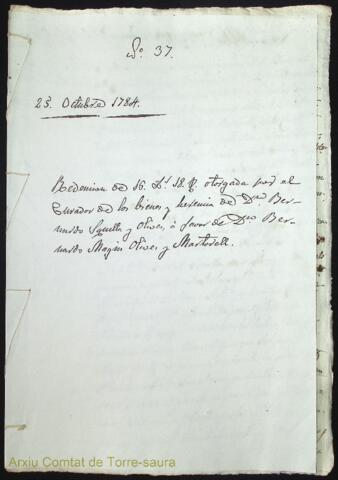 Nº 37.
23. Octubre 1784.
Redencion de 16. L.s 18. otorgada por el
Curador de los bienes y herencia de Dn. Ber-
nardo Squella y Olives, à favor de Dn. Ber-
nardo Magin Olives y Martorell.
Arxiu Comtat de Torre-saura